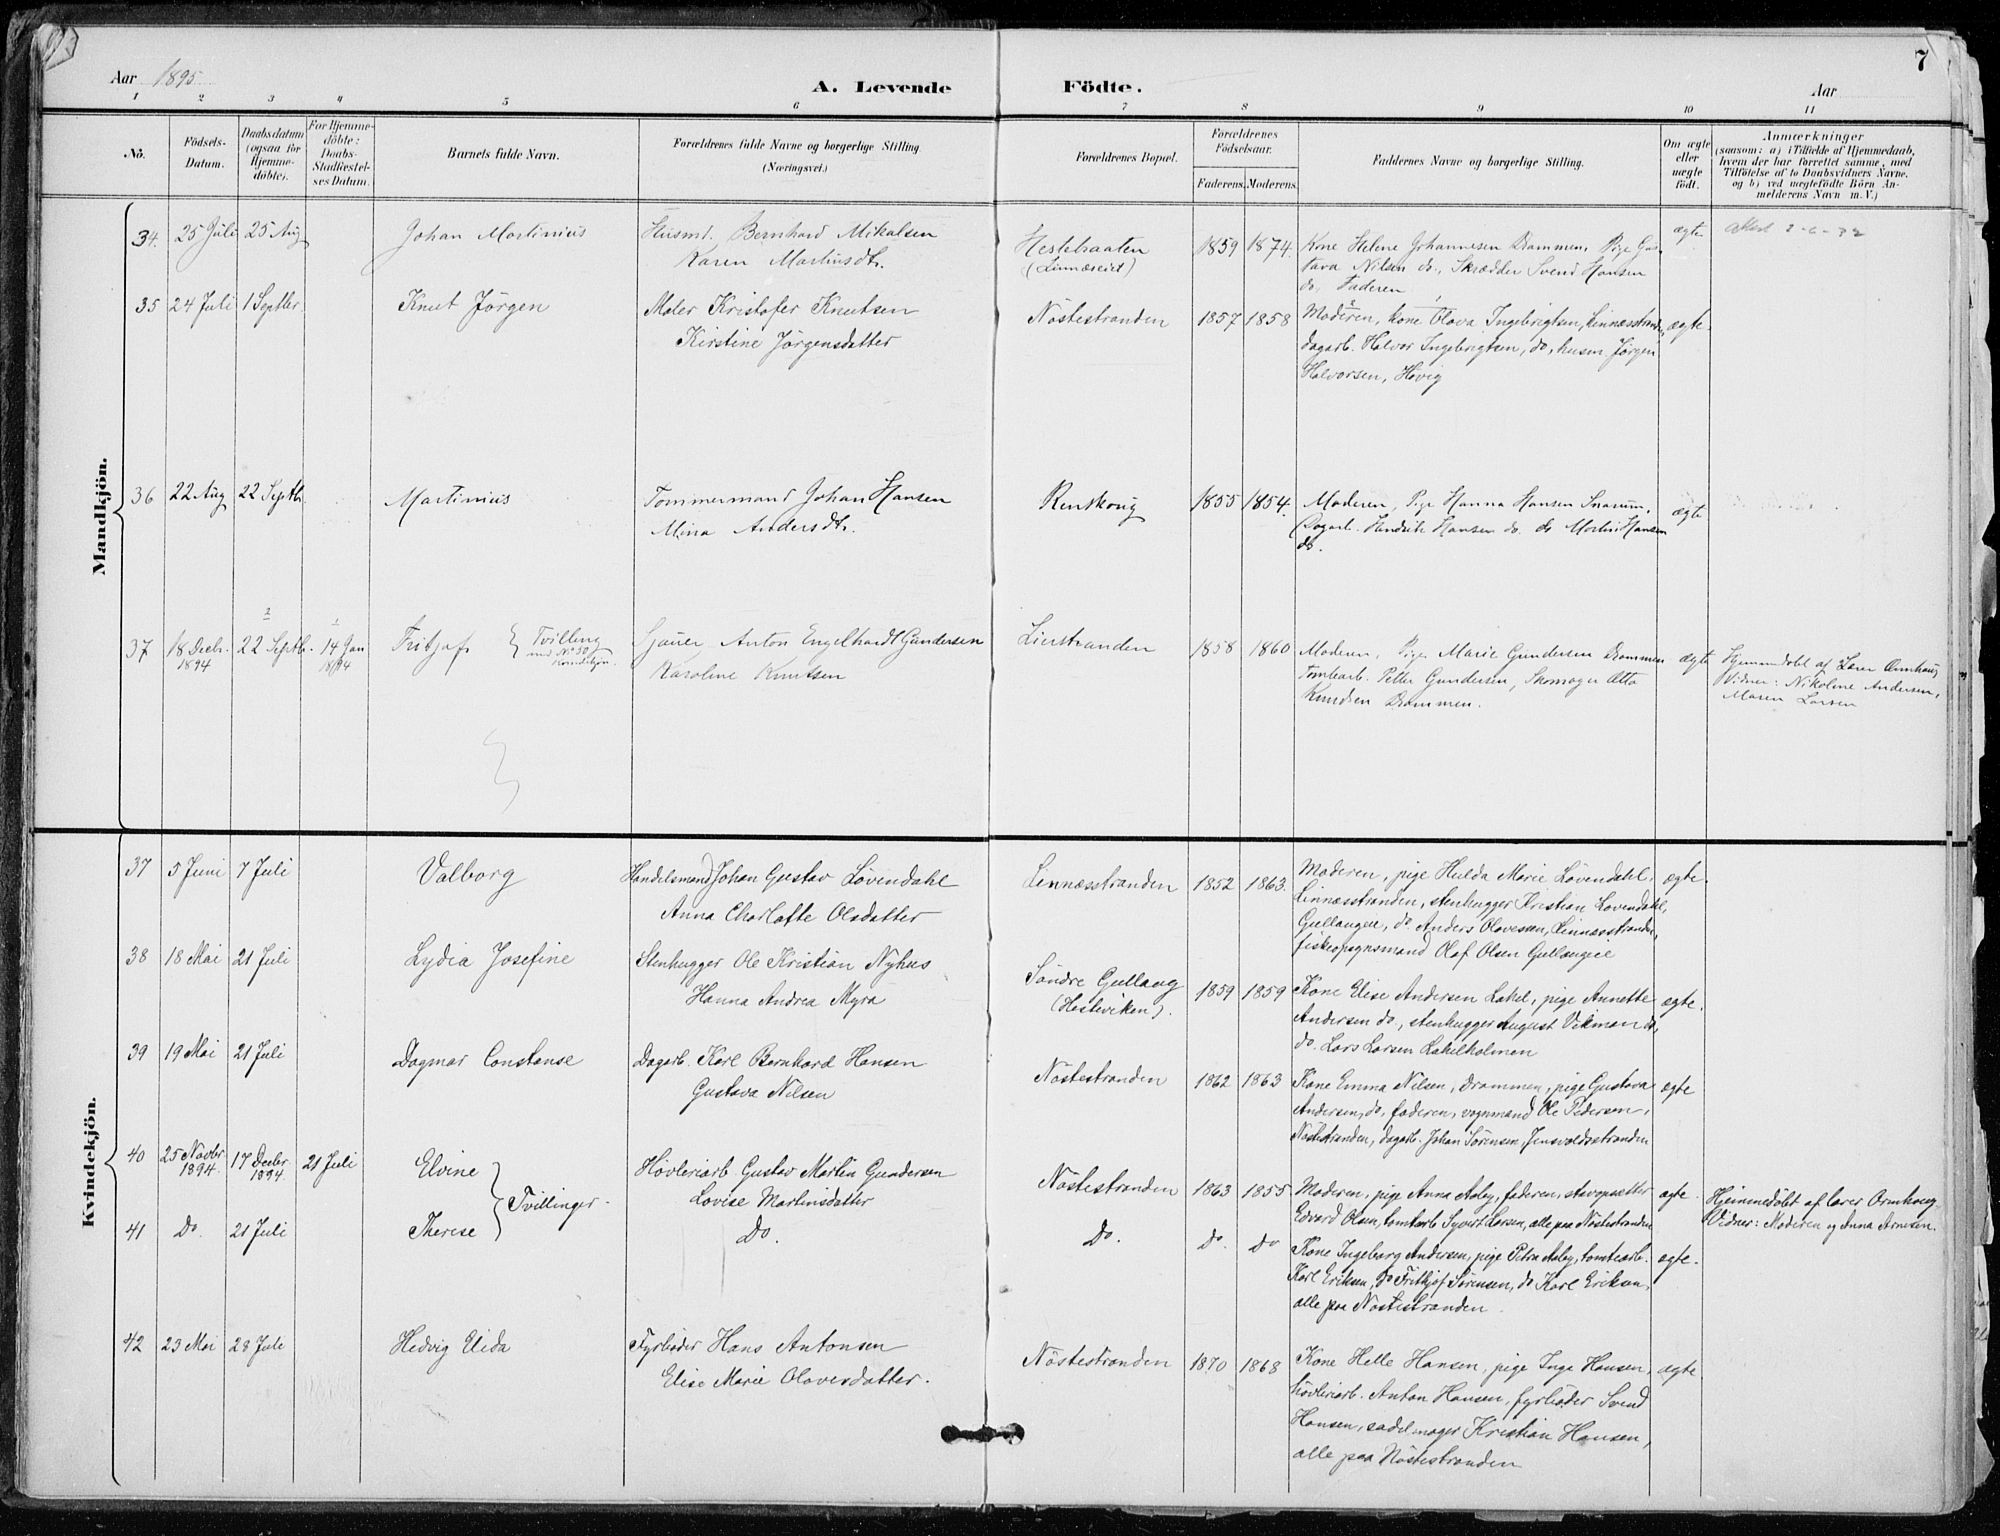 7
Aar 1895
A. Levende Födte.
Aar
1 2 3 4 5 6 7 8 9 10 11
No.
Födsels-
Datum.
Daabsdatum
(ogsaa for
Hjemme-
döbte).
For Hjemme-
döbte:
Daabs-
Stadfæstel-
ses Datum.
Barnets fulde Navn.
Forældrenes fulde Navne og borgerlige Stilling.
(Næringsvei.)
Forældrenes Bopæl.
Forældrenes
Födselsaar.
Faderens. Moderens.
Faddernes Navne og borgerlige Stilling.
Om ægte
eller
uægte
födt.
Anmærkninger
(saasom: a) i Tilfælde af Hjemmedaab,
hvem der har forrettet samme, med
Tilföielse af to Daabsvidners Navne.
og b) ved uægtefödte Börn An-
melderens Navn m. V.)
Mandkjön.
34. 25 Juli 25 Aug Johan Martinius Husmd. Bernhard Mikalsen
Karen Martinsdtr.
Hestebraaten
(Linnæseiet)
1859 1874.
Kone Helene Johannesen Drammen, Pige Gus-
tava Nilsen do., Skrædder Svend Hansen
do. Faderen
ægte
35 24 Juli 1 Septber Knut Jörgen Maler Kristofer Knutsen
Kirstine Jörgensdatter
Nöstestranden 1857 1858
Moderen, kone Olava Ingebrigtsen, Linnæsstranden,
dagarb. Halvor Ingebrigtsen, do, husm. Jörgen
Halvorsen, Hövig
ægte.
36 22 Aug 22 Septb. Martinius Tömmermand Johan Hansen
Mina Andersdtr.
Renskoug 1855 1854.
Moderen, Pige Hanna Hansen Snarum,
Dagarb. Hendrik Hansen do. do Martin Hansen
do.
ægte
37 18 Decb. 1894 22 Septb. 14 Jan 18/94 Fritjof
Tvilling
med No 50
Kvindekjön.
Sjauer Anton Engelhardt Gundersen
Karoline Knutsen
Lierstranden 1858 1860
Moderen, Pige Marie Gundersen Drammen
Tomtearb. Petter Gundersen, Skomager Otto
Knudsen Drammen.
ægte
Hjemmedöbt af Lærer Ormhaug
Vidner: Nikoline Andersen,
Maren Larsen
Kvindekjön.
37 5 Juni 7 Juli Valborg Handelsmand Johan Gustav Lövendahl
Anna Charlotte Olsdatter
Linnæsstranden 1852 1863.
Moderen, pige Hulda Marie Lövendahl,
Linnæsstranden, stenhugger Kristian Lövendahl,
Gullaugeie, do. Anders Olavesen, Linnæsstranden,
fiskeopsynsmand Olaf Olsen Gullaugeie
ægte.
38 18 Mai 21 Juli Lydia Josefine Stenhugger Ole Kristian Nyhus
Hanna Andrea Myra
Söndre Gullaug
(Hesteviken).
1859 1859
Kone Elise Andersen Lahel, pige Annette
Andersen do., stenhugger August Vikman do,
do. Lars Larsen Lahelholmen
ægte.
39 19 Mai 21 Juli Dagmar Constanse Dagarb. Karl Bernhard Hansen
Gustava Nilsen
Nöstestranden 1862 1863
Kone Emma Nilsen, Drammen, pige Gustava
Andersen, do, faderen, vognmand Ole Pedersen,
Nöstestranden, dagarb. Johan Sörensen, Jensvoldsstranden
ægte
40 25 Novbr 1894. 17 Decbr 1894. 21 Juli Elvine
Tvillinger.
Hövleriarb. Gustav Martin Gundersen
Lovise Martinsdatter
Nöstestranden 1863 1855
Moderen, pige Anna Asby, faderen, stavopsætter
Edvard Olsen, tomtarb Syvert Larsen, alle paa Nöstestranden
ægte.
Hjemmedöbt af lærer Ormhaug.
Vidner: Moderen og Anna Arnesen.
41 Do. 21 Juli Therese Do. Do. Do. Do
Kone Ingeborg Andersen, pige Petra Asby, tomtearb.
Karl Eriksen, do Frithjof Sörensen, do Karl Eriksen,
alle paa Nöstestranden.
ægte.
42 23 Mai 28 Juli Hedvig Elida Fyrböder Hans Antonsen
Elise Marie Olaverdatter.
Nöstestranden 1870 1868
Kone Helle Hansen, pige Inga Hansen,
hövleriarb. Anton Hansen, fyrböder Svend
Hansen, sadelmager Kristian Hansen,
alle paa Nöstestranden
ægte.